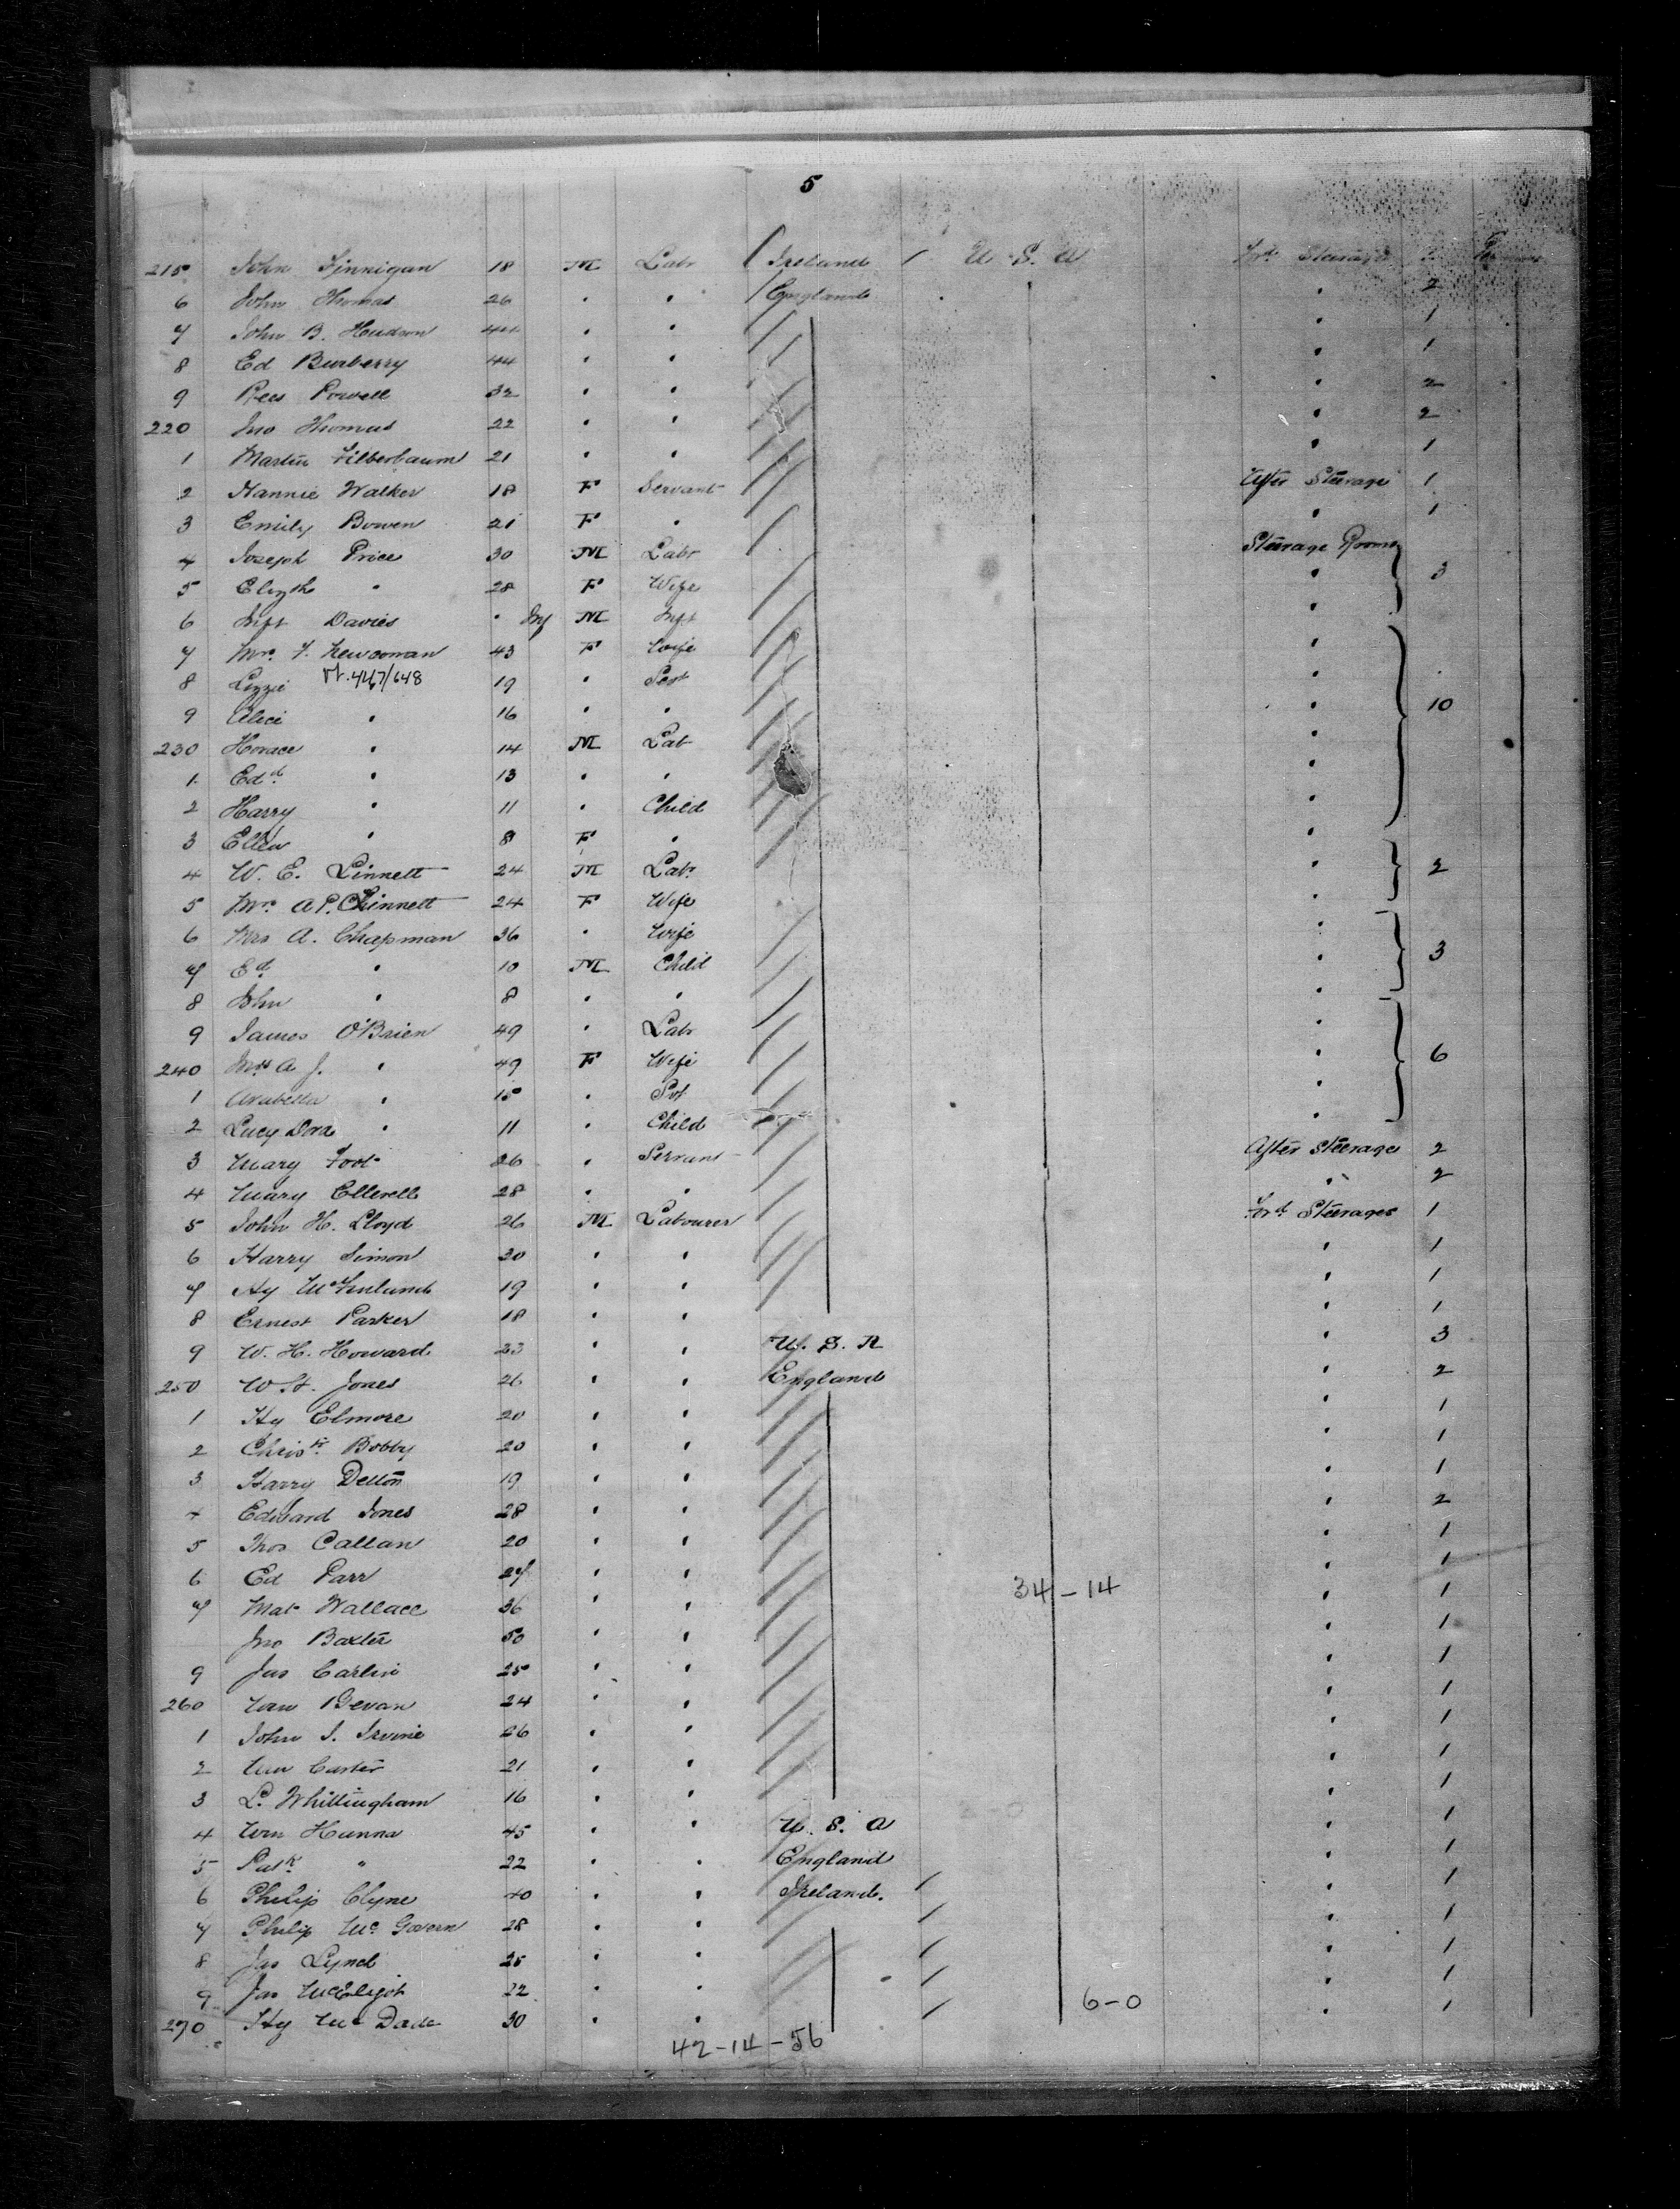 5
215 John Finnigan 18 M Labr Ireland U S A Ford Steerage
6 John Thomas 26 " " England " 2
7 John B. Hudson 44 " " " 1
8 Ed Burberry 44 " " " 1
9 Rees Powell 32 " " " 2
220 Jno Thomas 22 " " " 2
1 Martin Filberbaum 21 " " " 1
2 Nannie Walker 18 F Servant After Steerage 1
3 Emily Bowen 21 F " " 1
4 Joseph Price 30 M Labr Steerage Rooms
5 Elizth " 28 F Wife " 3
6 Inft Davies " Inf M Inft "
7 Mrs F. Newcoman 43 F Wife "
8 Lizzie 19 " "
9 Alice " 16 " " " 10
230 Horace " 14 M Lab "
1 Edd " 13 " " "
2 Harry " 11 " Child "
3 Ellen " 8 F " "
4 W. E. Linnett 24 M Labr " 2
5 Mrs A P. Linnett 24 F Wife "
6 Mrs A. Chapman 36 " Wife "
7 Ed " 10 M Child " 3
8 John " 8 " " "
9 James O'Brien 49 " Labr "
240 Mrs A J. " 49 F Wife " 6
1 Arabella " 15 " "
2 Lucy Dora " 11 " Child "
3 Mary Foot 26 " Servant After Steerage 2
4 Mary Ellerell 28 " " " 2
5 John H. Lloyd 26 M Labourer Ford Steerage 1
6 Harry Simon 30 " " " 1
7 Hy 19 " " " 1
8 Ernest Parker 18 " " " 1
9 W. H. Howard 23 " " U. S. A " 3
250 W H. Jones 26 " " England " 2
1 Hy Elmore 20 " " " 1
2 Christr Bobby 20 " " " 1
3 Harry Delton 19 " " " 1
4 Edward Jones 28 " " " 2
5 Thos Callan 20 " " " 1
6 Ed Parr 27 " " " 1
34-14
7 Mat Wallace 36 " " " 1
Jno Baxter 50 " " " 1
9 Jas Carlin 25 " " " 1
260 Wm Bevan 24 " " " 1
1 John J. Irvine 26 " " " 1
2 Wm Carter 21 " " " 1
3 L. Whittingham 16 " " " 1
4 Wm Hanna 45 " " U. S. A " 1
5 Patk " 22 " " England " 1
6 Philip Clyne 40 " " Ireland. " 1
7 Philip Mc Govern 28 " " " 1
8 Jas Lynch 25 " " " 1
9 Jas McEligot 22 " " " 1
6-0
270 Hy Mc Dade 30 " " " 1
42-14-56